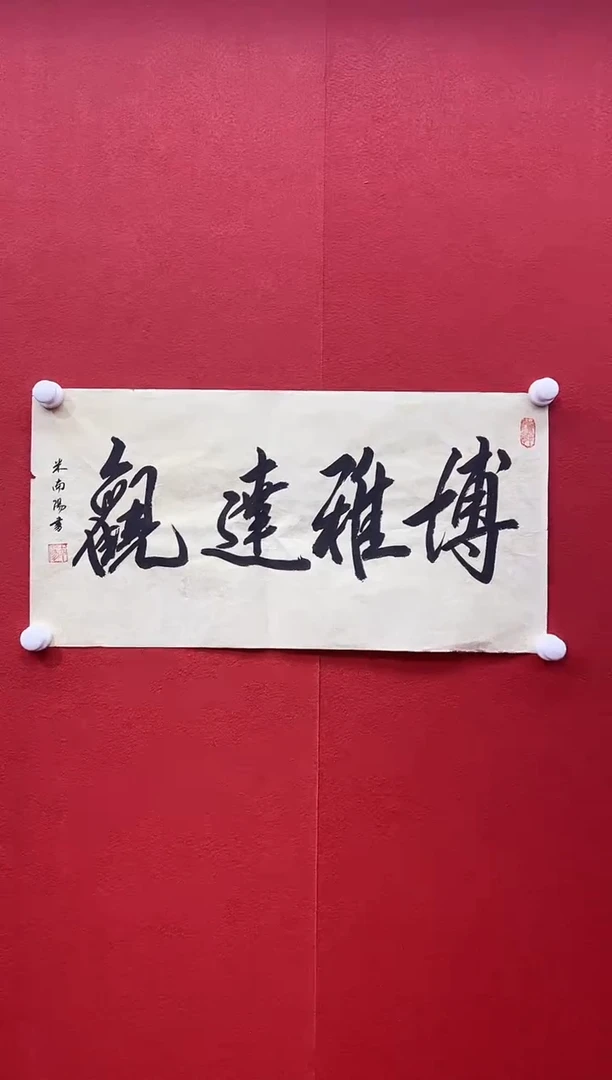 博雅達觀
米南陽書